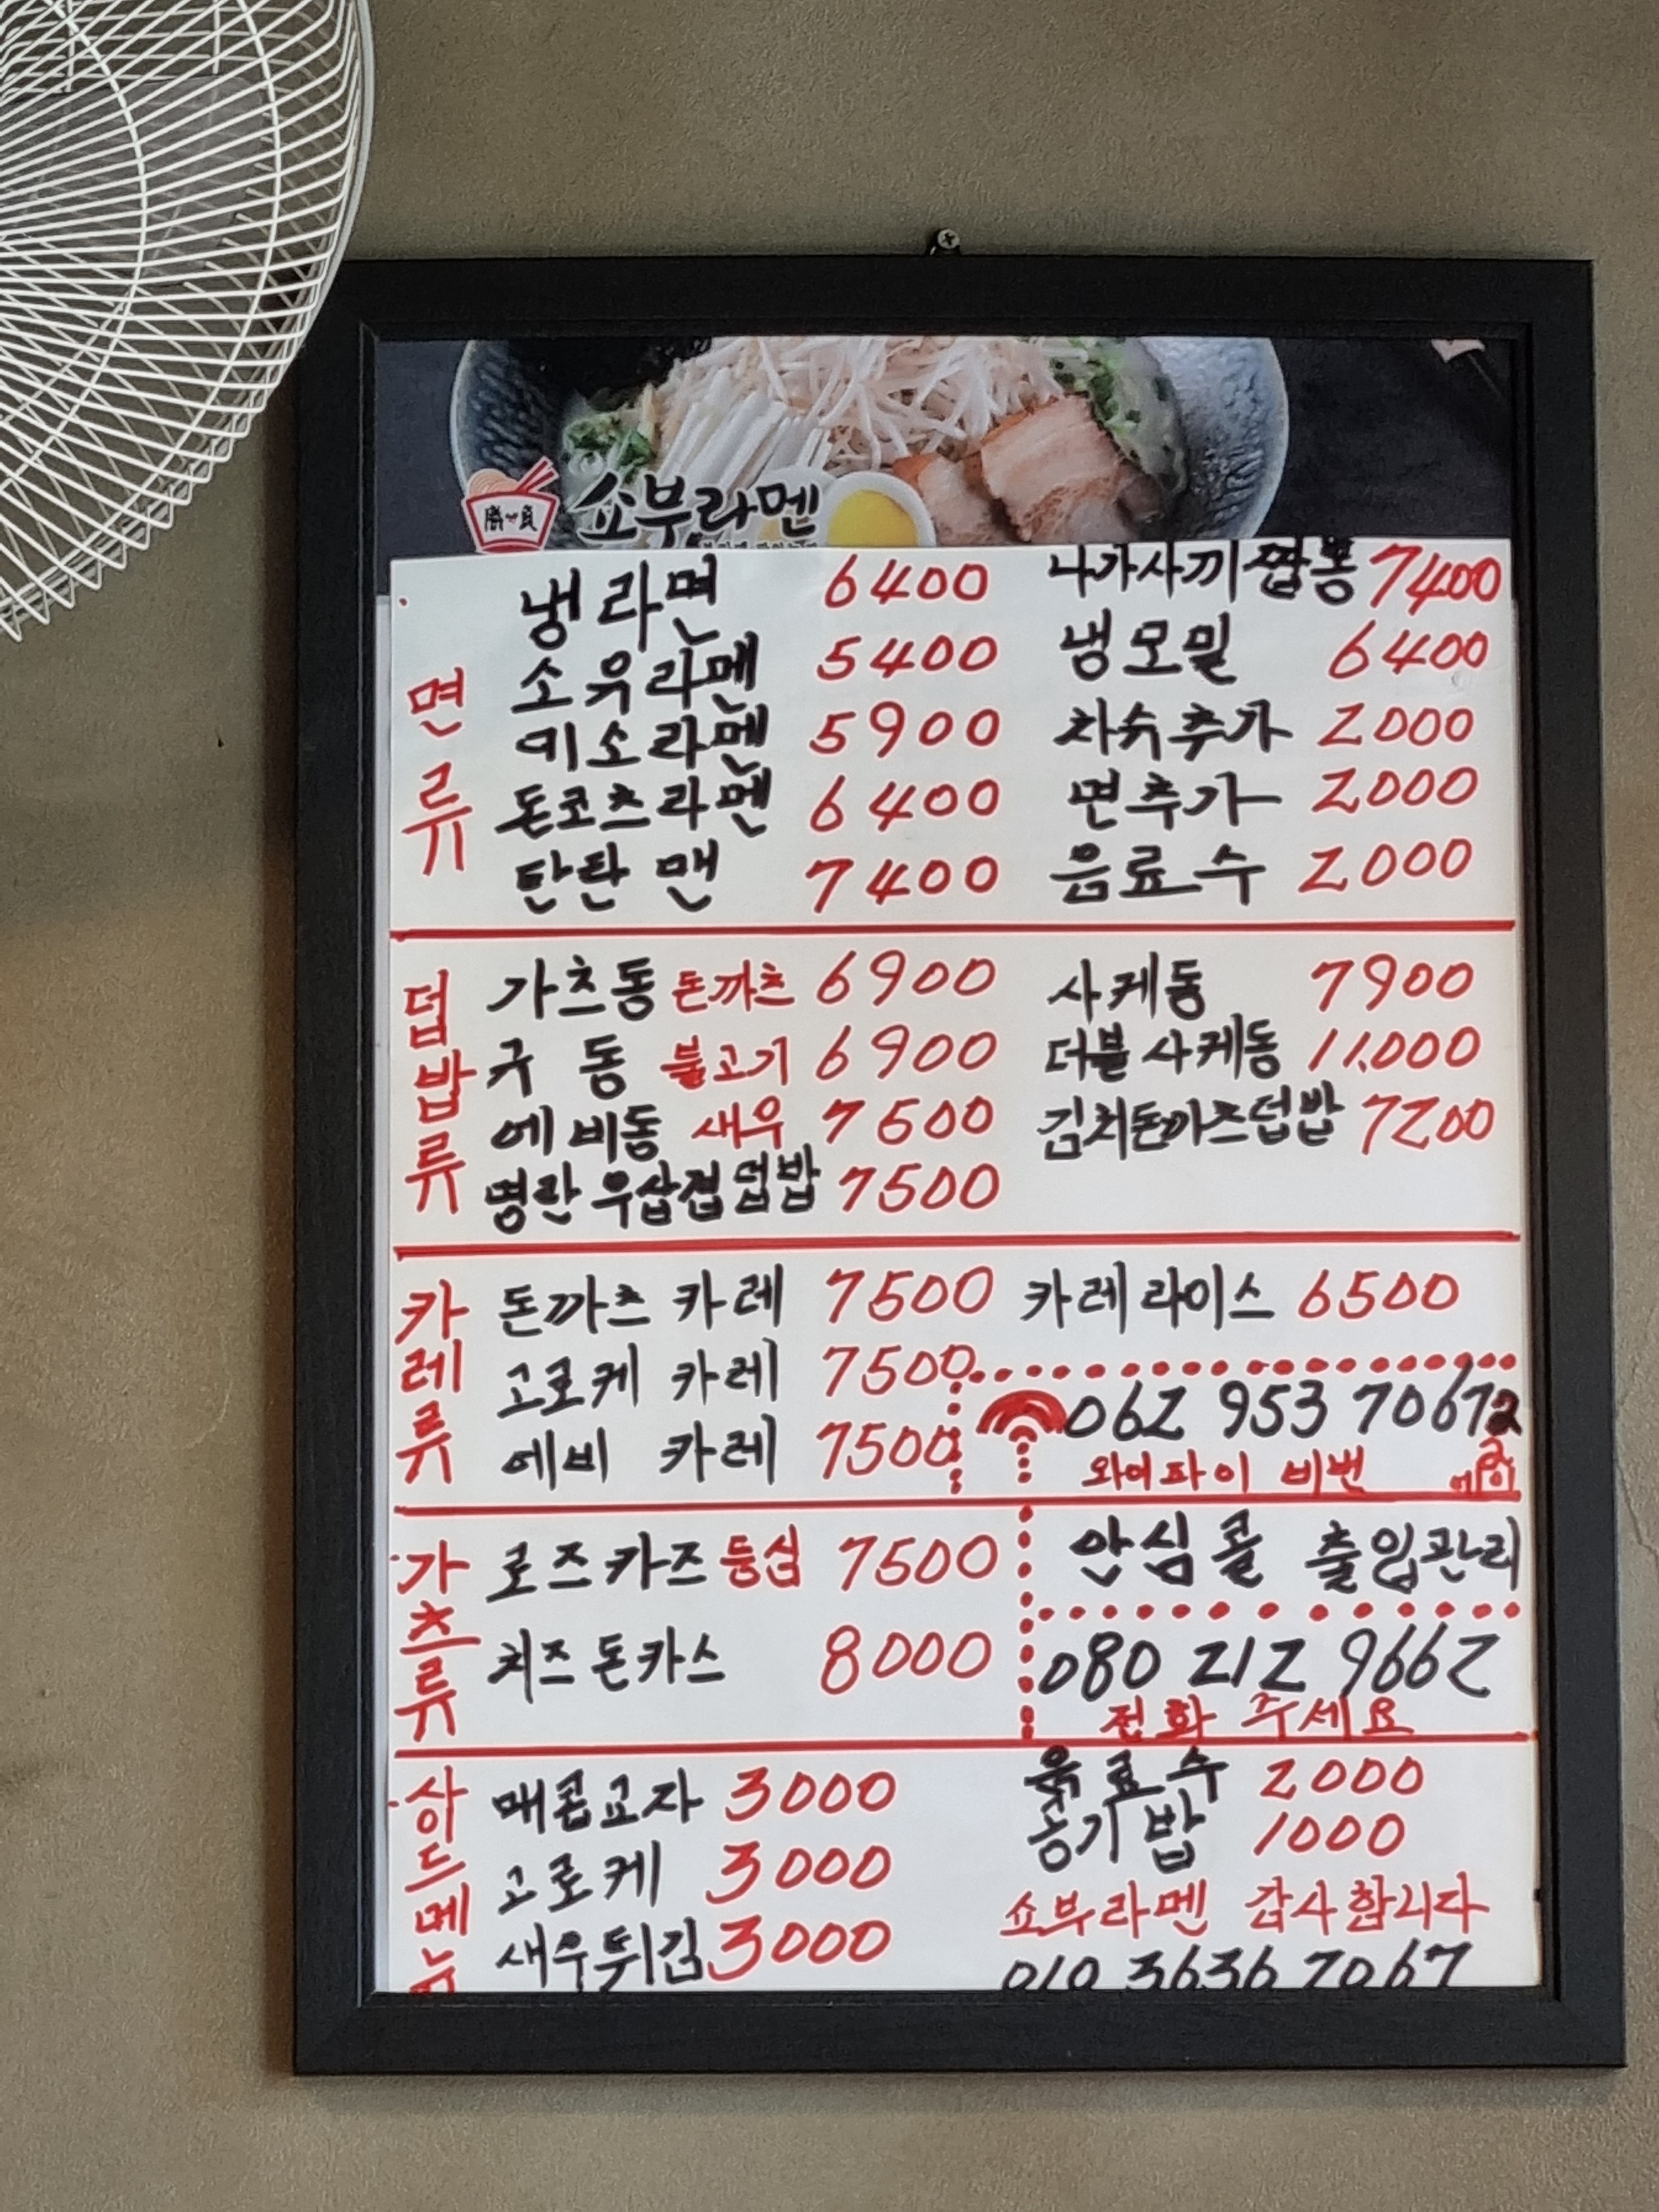 勝負
쇼부라멘
면류
냉라면 6400
소유라멘 5400
미소라멘 5900
돈코츠라멘 6400
탄탄 맨 7400
나가사끼짬뽕 7400
냉모밀 6400
차슈추가 2000
면추가 2000
음료수 2000
덮밥류
가츠동 돈까츠 6900
규 동 불고기 6900
에비동 새우 7500
명란 우삼겹덮밥 7500
사케동 7900
더블 사케동 11.000
김치돈까즈덮밥 7200
카레류
돈까츠 카레 7500
고로케 카레 7500
에비 카레 7500
카레라이스 6500
062 953 7067
와이파이 비번
가츠류
로즈카즈 등심 7500
치즈돈카스 8000
안심콜 출입관리
080 212 9662
전화 주세요
사이드메뉴
매콤교자 3000
고로케 3000
새우튀김 3000
음료수 2000
공기밥 1000
쇼부라멘 감사합니다
010 3636 7067